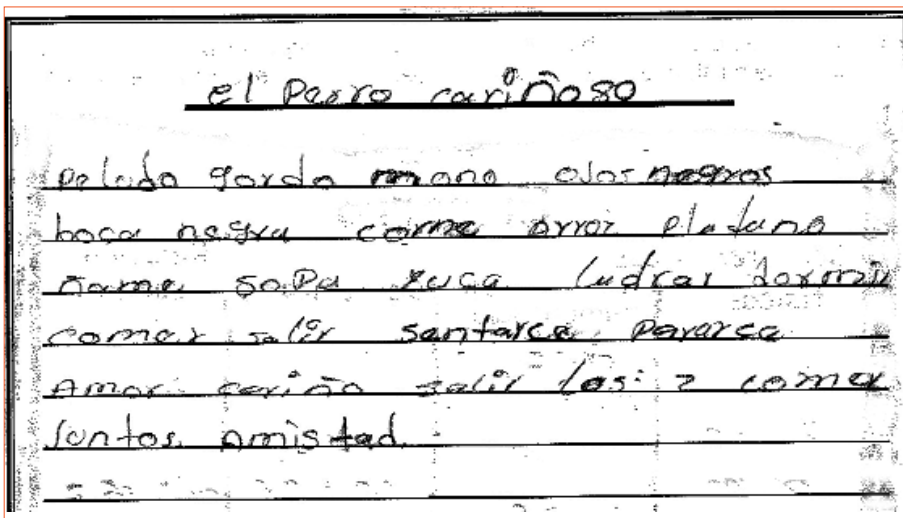 el Perro cariñoso
Peludo gordo mono ojos negros
boca negra come arroz platano
ñame sopa yuca ladrar dormir
comer salir sentarce pararce
Amor cariño salir los 2 comer
juntos amistad